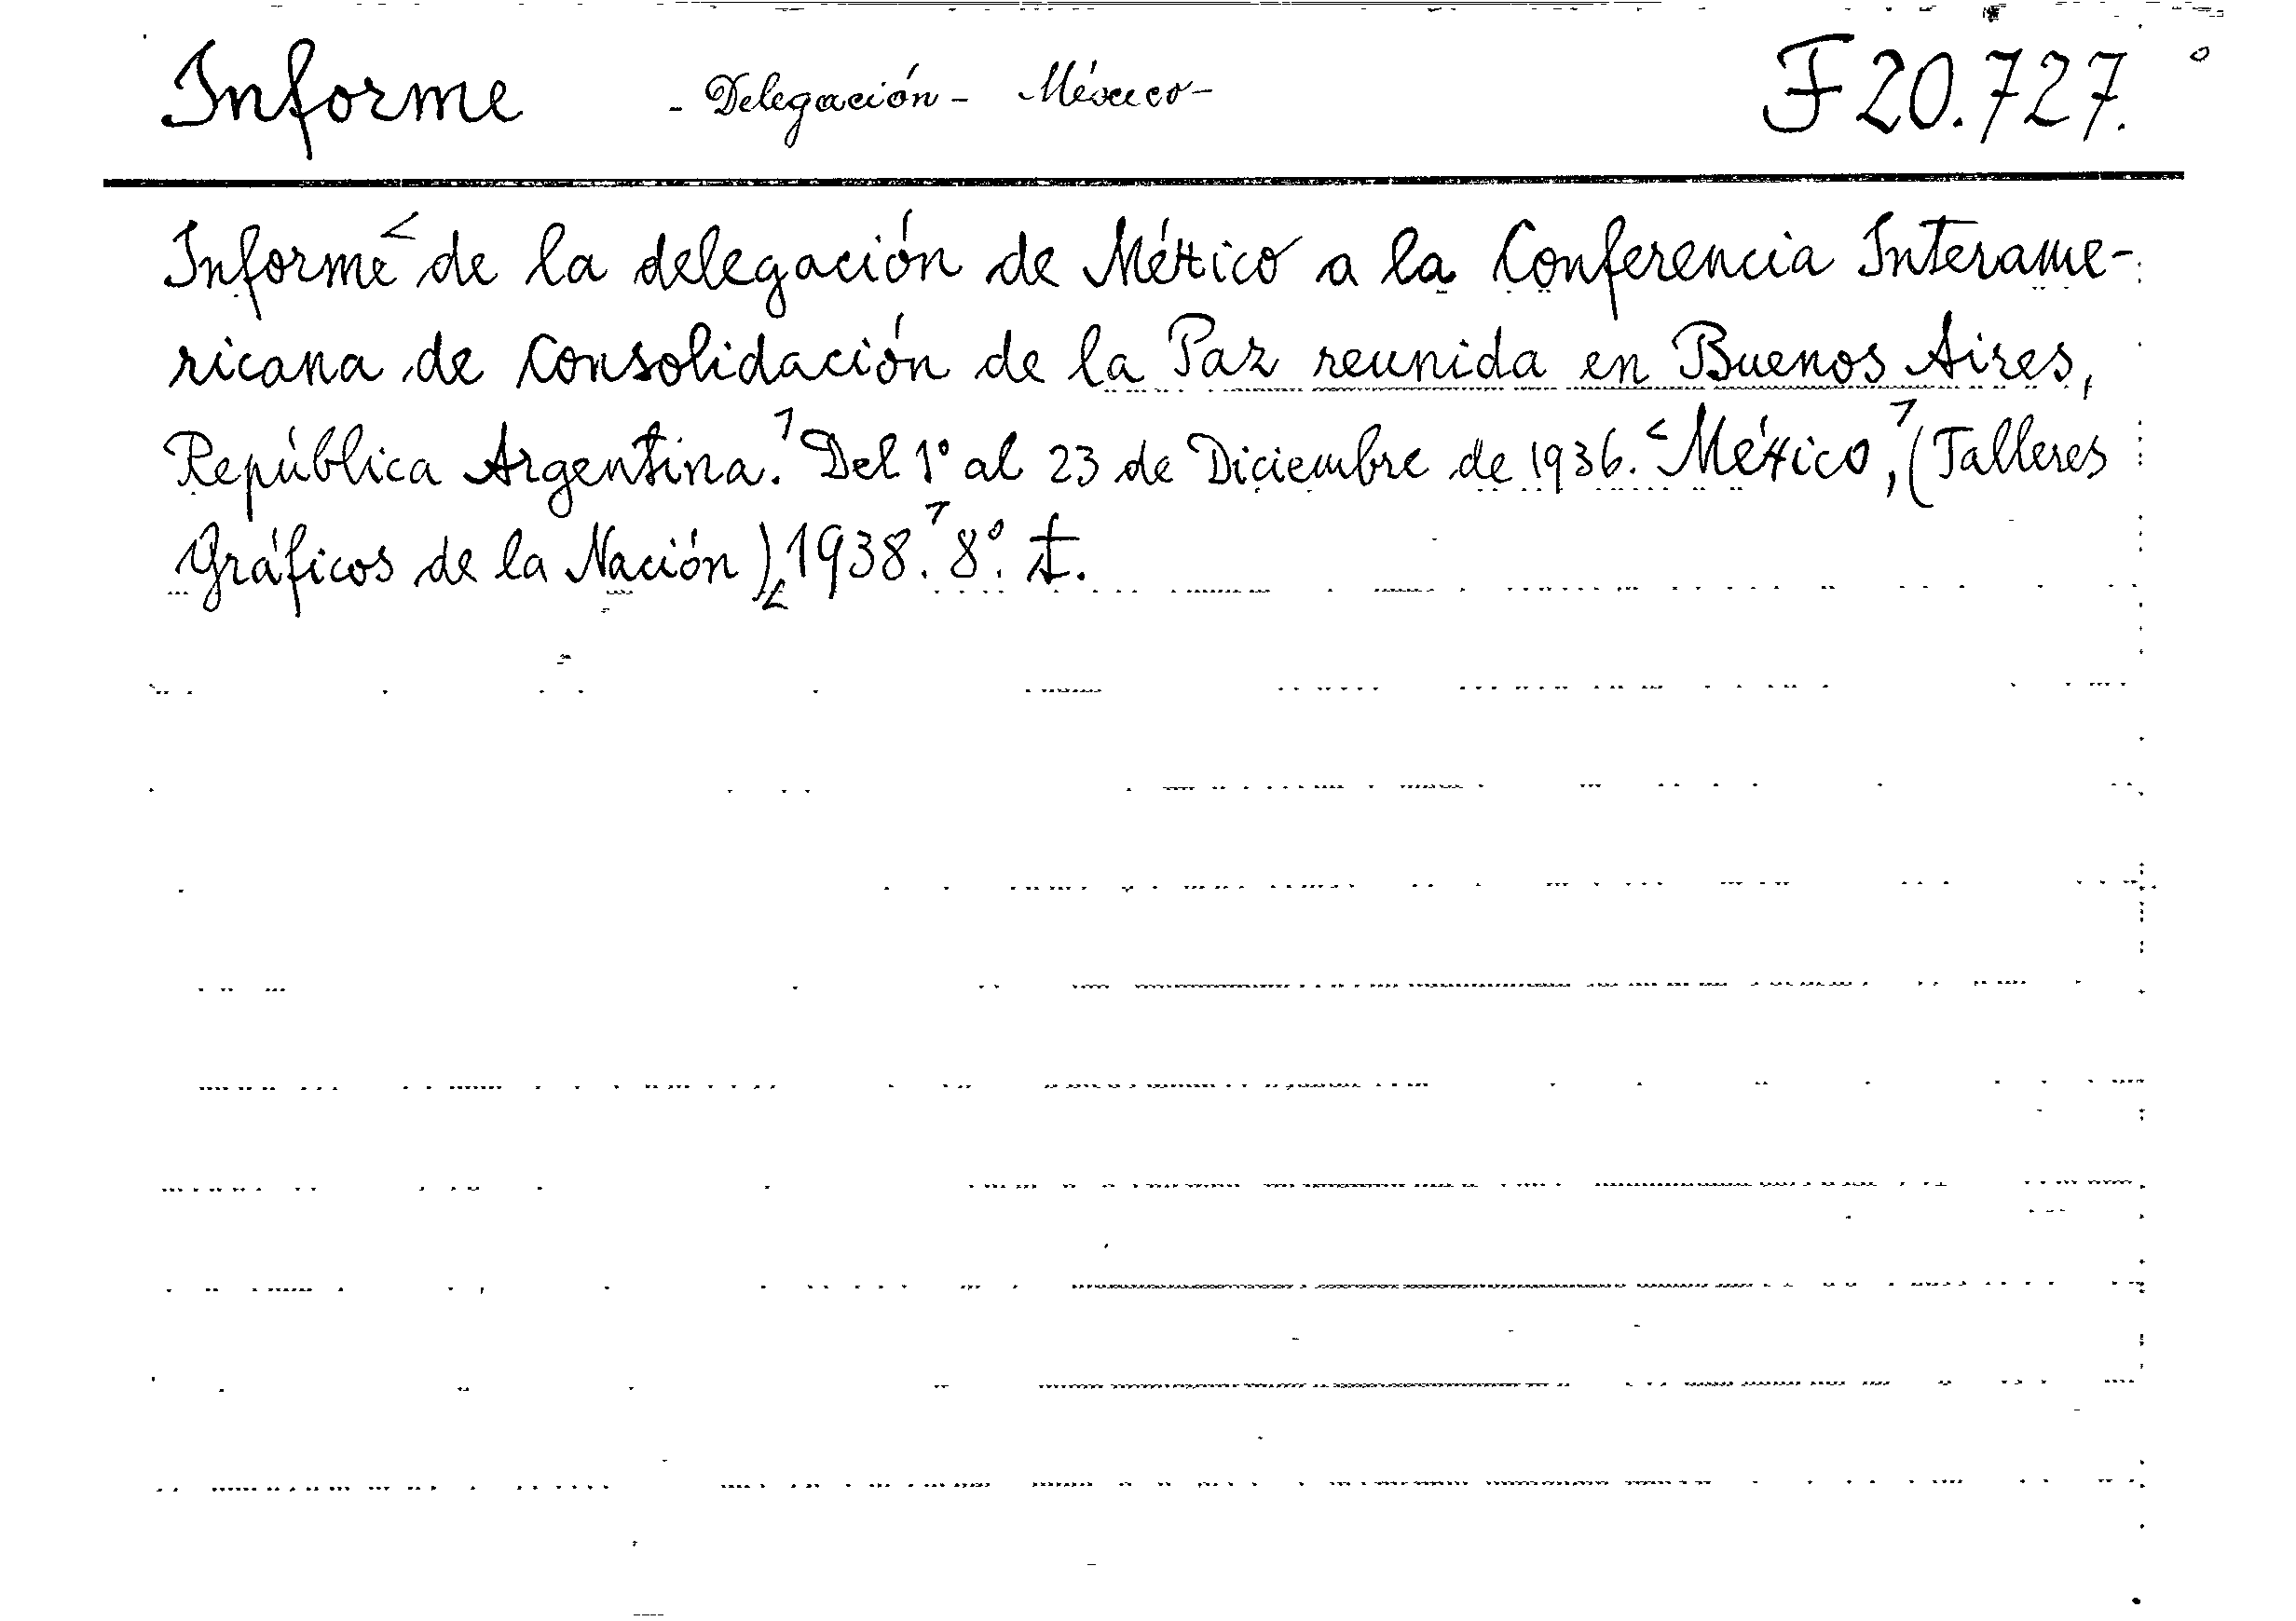 Informe - Delegación - México - F 20.727.
Informe de la delegación de México a la Conferencia Interame-
ricana de Consolidación de la Paz reunida en Buenos Aires,
República Argentina. Del 1º al 23 de Diciembre de 1936. México, (Talleres
Gráficos de la Nación), 1938. 8º.